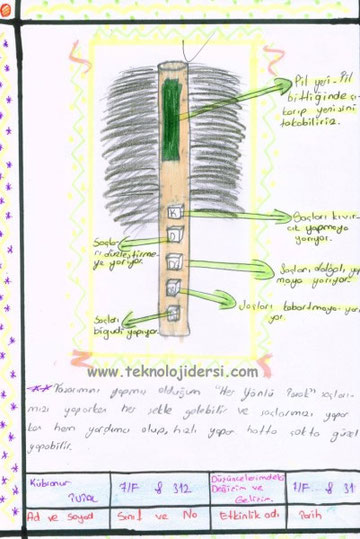 Pil yeri-Pil
bittiğinde çı-
karıp yenisini
takabiliriz.
K
Saçları kıvır-
cık yapmaya
yarıyor.
D
Saçla-
rı düzleştirme-
ye yarıyor.
Saçları dalgalı ya
maya yarıyor.
Saçları kabartmaya yarı-
yor.
Saçları
bigudi yapıyor.
www.teknolojidersi.com
Tasarımını yapmış olduğum "Her Yönlü Tarak" saçları-
mızı yaparken her şekle gelebilir ve saçlarımızı yapar
ken hem yardımcı olup, hızlı yapar hatta çokta güzel
yapabilir.
Kübranur
7/F & 312
Düşüncelerimdeki
Değişim ve
Gelişim.
7/F & 31
Ad ve Soyad
Sınıf ve No
Etkinlik adı
Tarih